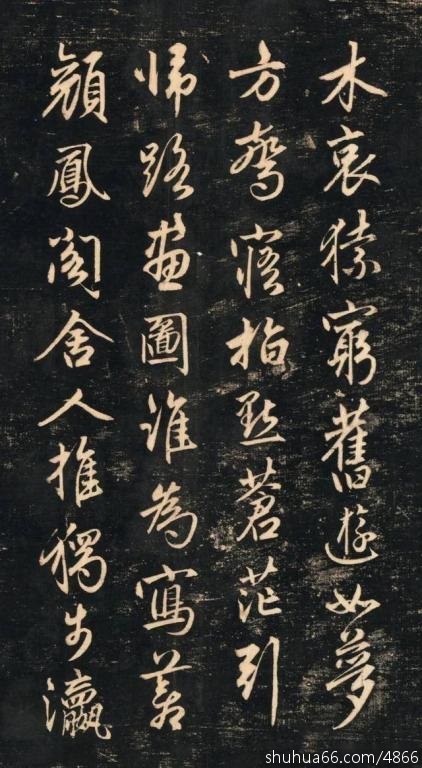 木哀猿窮舊遊如夢
方驚寤指點蒼茫引
歸路畫圖誰為寫
顏鳳閣舍人推獨步瀛
shuhua66.com/4866